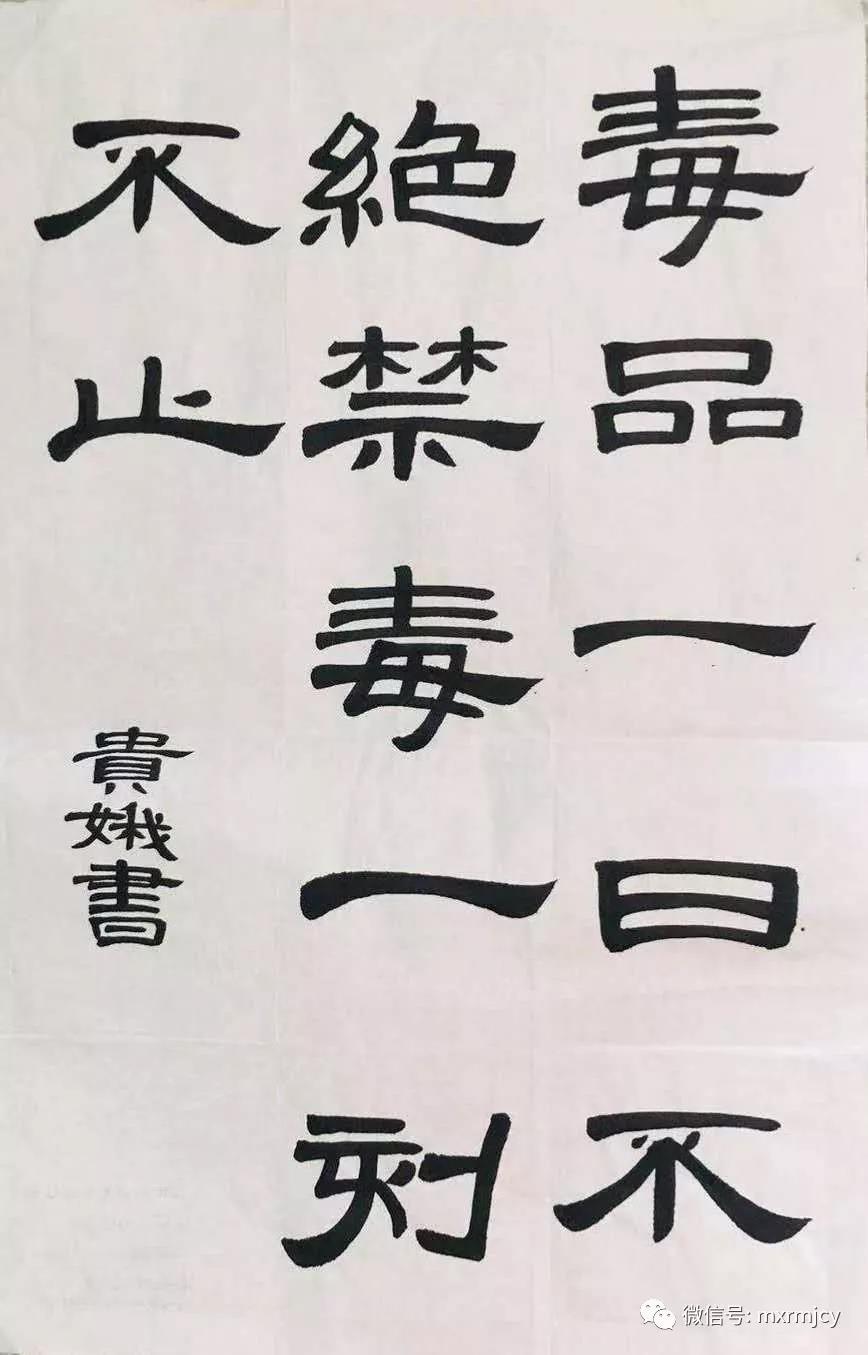 毒品一日不
絶禁毒一刻
不止
貴娥書
微信号: mxrmjcy